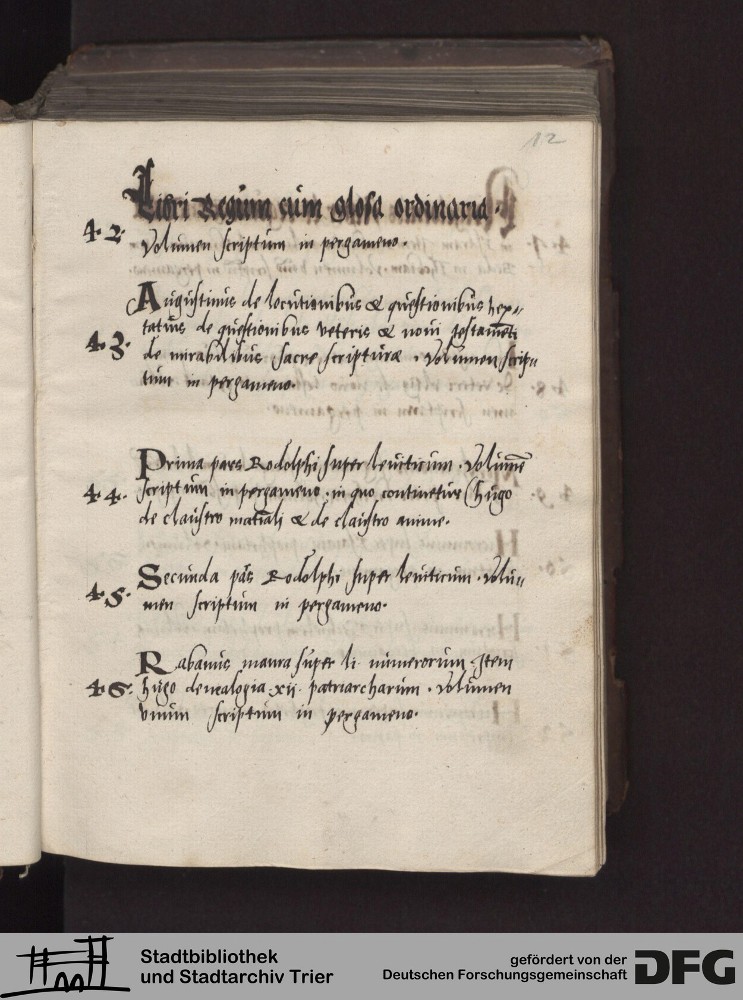 12
Libri Regum cum glosa ordinaria.
4.2. Volumen scriptum in pergameno.
Augustinus de locutionibus & questionibus hep=
tatius de questionibus veteris & noui testamēti
4.3. de mirabilibus sacre scripturæ. Volumen scrip=
tum in pergameno.
Prima pars Rodolphi super leuiticum. Volumē
4.4. scriptum in pergameno. in quo continetur Hugo
de claustro mat̄iali & de claustro anime.
Secunda pars Rodolphi super leuiticum. Volu=
4.5. men scriptum in pergameno.
Rabanus maura super li. numerorum. Item
4.6. hugo de nealogia .xii. patriarcharum. Volumen
vnum scriptum in pergameno.
Stadtbibliothek
und Stadtarchiv Trier
gefördert von der
Deutschen Forschungsgemeinschaft
DFG